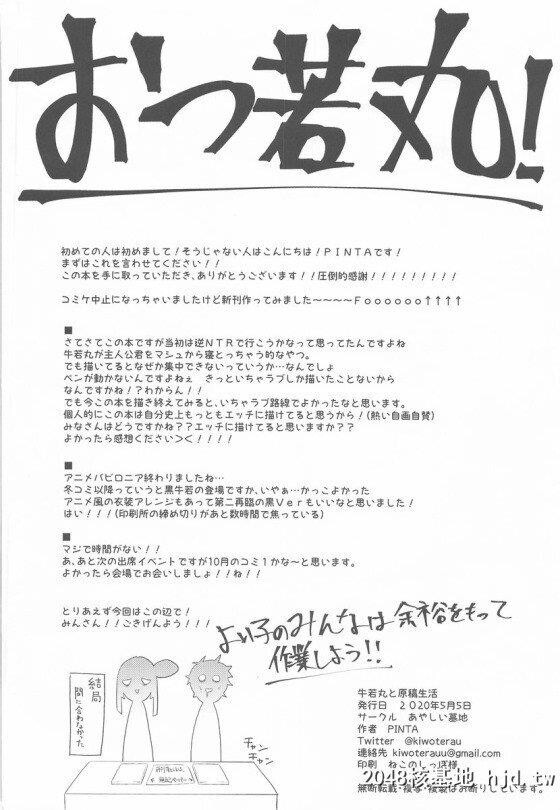 おつ若丸!
初めての人は初めまして!そうじゃない人はこんにちは!PINTAです!
まずはこれを言わせてください!!
この本を手に取っていただき、ありがとうございます!!圧倒的感謝!!!!!!!!!
コミケ中止になっちゃいましたけど新刊作ってみました~~~~Foooooo↑↑↑↑
■
さてさてこの本ですが当初は逆NTRで行こうかなって思ってたんですよね
牛若丸が主人公君をマシュから寝とっちゃう的なやつ。
でも描いてるとなぜか集中できないっていうか…なんでしょ
ペンが動かないんですよねぇ きっといちゃラブしか描いたことないから
なんですかね!?わからん!!
でも今この本を描き終えてみると、いちゃラブ路線でよかったなと思います。
個人的にこの本は自分史上もっともエッチに描けてると思うから!(熱い自画自賛)
みなさんはどうですかね??エッチに描けてると思いますか??
よかったら感想ください><!!!!
■
アニメバビロニア終わりましたね…
冬コミ以降っていうと黒牛若の登場ですか、いやぁ…かっこよかった
アニメ風の衣装アレンジもあって第二再臨の黒Verもいいなと思いました!
はい!!!(印刷所の締め切りがあと数時間で焦っている)
■
マジで時間がない!!
あ、あと次の出席イベントですが10月のコミ1かな~と思います。
よかったら会場でお会いしましょ!!ね!!
とりあえず今回はこの辺で!
みんさん!!ごきげんよう!!!
よい子のみんなは余裕をもって
作業しよう!!
結局
間に合わなかった
チャン
チャン
牛若丸と原稿生活
発行日 2020年5月5日
サークル あやしい墓地
作者 PINTA
Twitter @kiwoterau
連絡先 kiwoterauu@gmail.com
印刷 ねこのしっぽ様
無断転載・複写・複製はお断りしています。
2048核基地hjd.tw